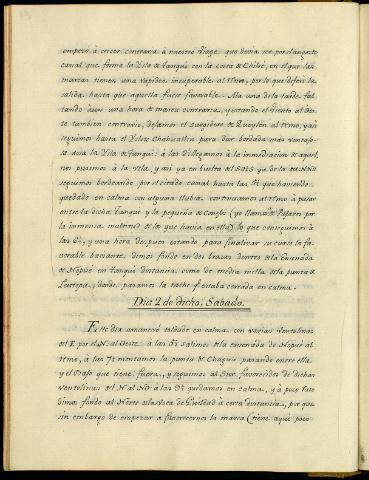 empezó á crecer contraria á nuestro Viage que devia ser por el angosto
canal que forma la Ysla de Tanqui con la costa de Chiloé, en el que las
mareas tienen una rapidez insuperable al remo, por lo que diferí la
salida hasta que aquella fuese favorable. A la una de la tarde fal-
tando aun una hora de marea contraria, y estando el viento al Oes-
te tambien contrario, dejamos el surgidero de Queylén al remo, y asi
seguimos hasta el Yslote Chalucallin para dar bordada mas ventajo-
sa acia la Ysla de Tanqui: á las llegamos á la inmediacion de aquel,
nos pusimos á la vela, y asi ya en buelta del
seguimos bordeando por el citado canal hasta las que haviendo
quedado en calma con alguna lluvia, continuamos al remo á pasar
entre la dicha Tanqui y la pequeña de (ye llaman de Pajaros por
la inmensa multitud de los que havia en ella) lo que conseguimos á
las y una hora despues estando para finalizar su curso la fa-
vorable baciante, dimos fondo en dos brazas dentro de la Ensenada
de en Tanqui distancia como de media milla de la punta de
donde pasamos la noche q.e estaba cerrada en calma.
Dia 2 de dicho, Sabado.
Este dia amaneció toldado en calma, con varias ventolinas
del E. por el N. al Oeste. á las salimos de la ensenada de al
remo, á las montamos la punta de Chaguin pasando entre ella
y el Bajo que tiene fuera, y seguimos al Sur favorecidos de dichas
ventolinas del N. al NO. á las quedamos en calma, y á poco rato
dimos fondo al Norte de la Roca de á corta distancia, por que
sin embargo de empezar á favorecernos la marea (tiene aqui poco